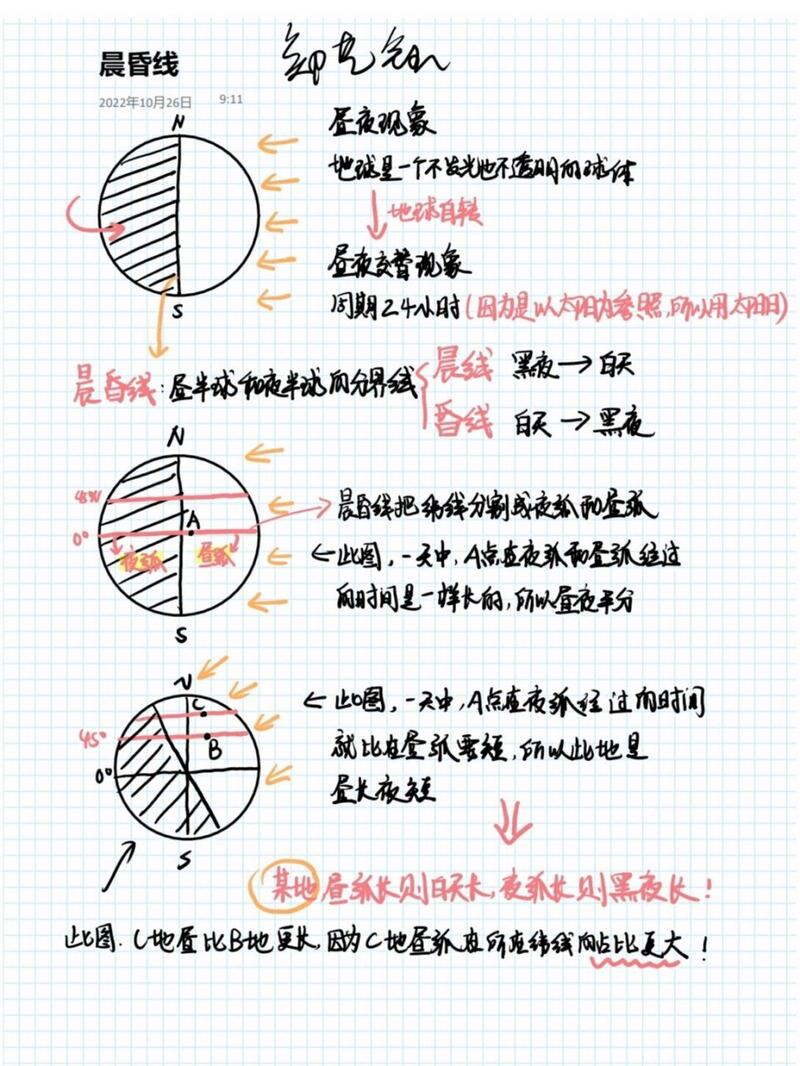 晨昏线
2022年10月26日 9:11
N
S
昼夜现象
地球是一个不发光也不透明的球体
地球自转
昼夜交替现象
周期24小时(因为是以太阳为参照,所以用太阳日)
晨昏线:昼半球和夜半球的分界线
晨线 黑夜→白天
昏线 白天→黑夜
N
45°N
A
0°
夜弧 昼弧
S
→晨昏线把纬线分割成夜弧和昼弧
←此图,一天中,A点在夜弧和昼弧经过
的时间是一样长的,所以昼夜平分
N
C
45°
B
0°
S
←此图,一天中,A点在夜弧经过的时间
就比在昼弧要短,所以此地是
昼长夜短
某地昼弧长则白天长,夜弧长则黑夜长!
此图.C地昼比B地更长,因为C地昼弧在所在纬线的占比更大!